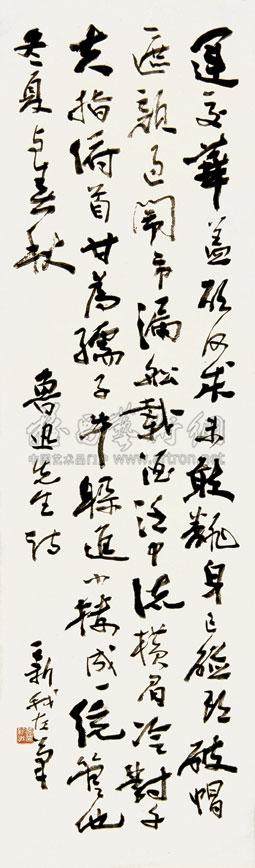 運交華蓋欲何求未敢翻身已碰頭破帽
遮顏過鬧市漏船載酒泛中流橫眉冷對千
夫指俯首甘為孺子牛躲進小樓成一統管他
冬夏与春秋 魯迅先生詩
新我左筆
雅昌藝術網
中国艺术品门户 www.artron.net